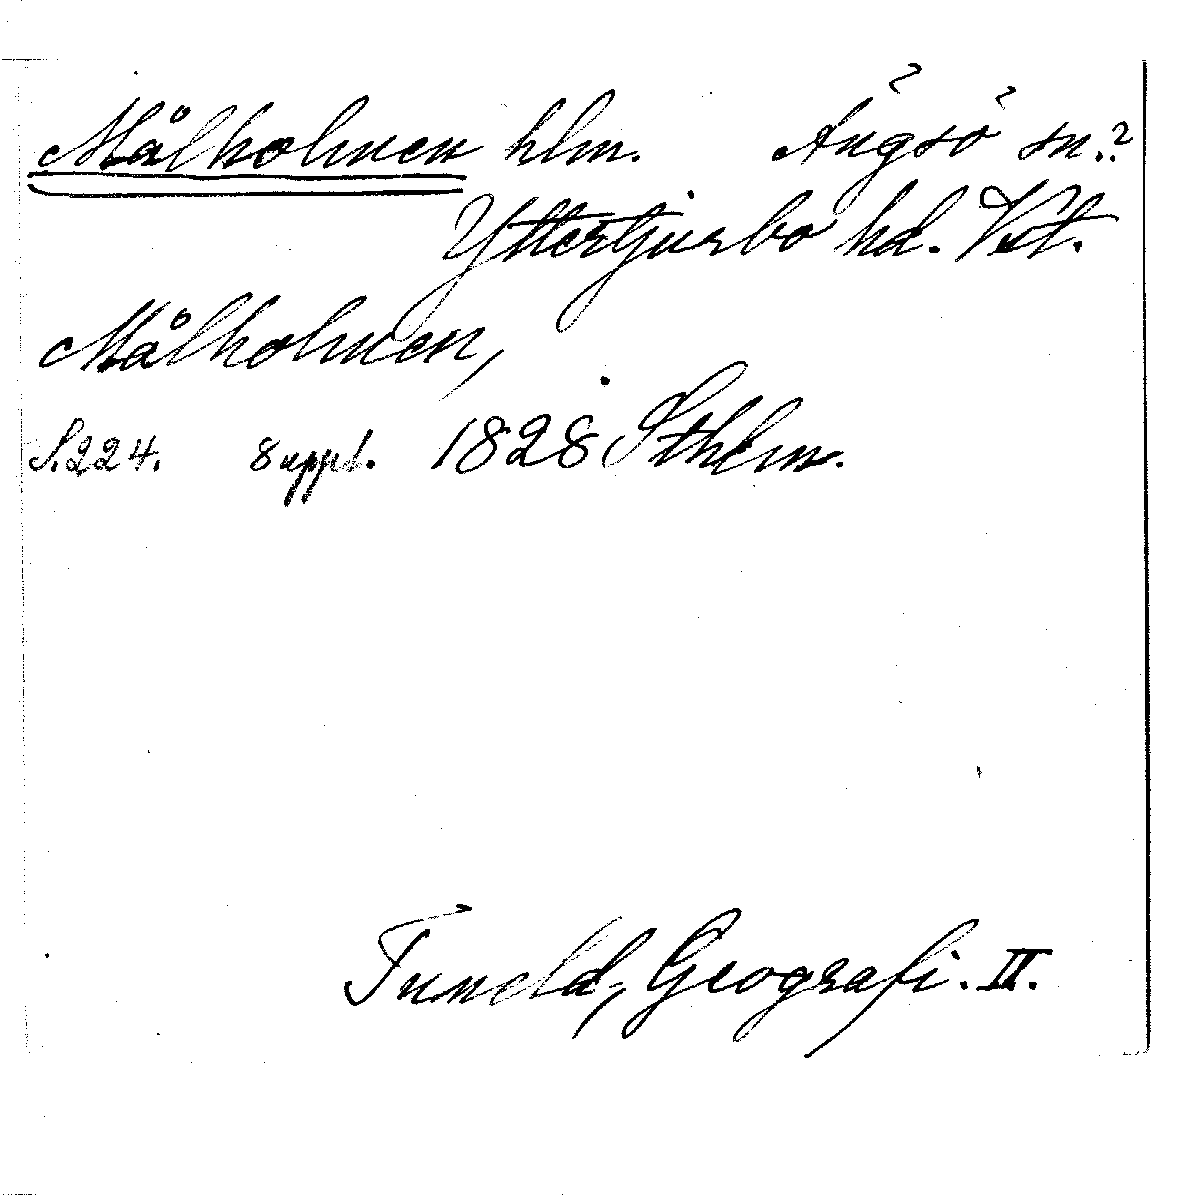 Målholmen hlm. Ängsö sn.?
Yttertjurbo hd. Vstm.
Målholmen,
S. 224. 8 uppl. 1828 Sthlm.
Tuneld, Geografi. II.